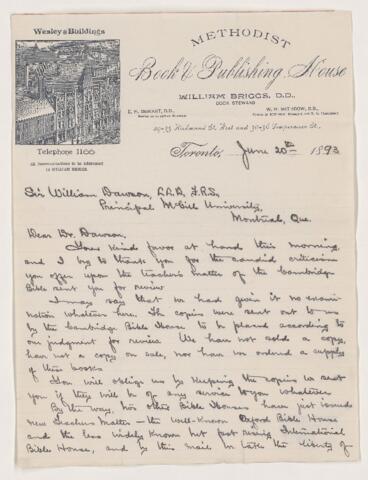 Wesley Buildings
METHODIST
Book & Publishing House
WILLIAM BRIGGS, D.D.,
BOOK STEWARD
E. H. DEWART, D.D.,
W. H. WITHROW, D.D.,
29-33 Richmond St. West and 30-36 Temperance St.,
Telephone 1166
All Communications to be addressed
to WILLIAM BRIGGS.
Toronto, June 20th 1893
Sir William Dawson, LL.D., F.R.S.,
Principal McGill University,
Montreal, Que.
Dear Dr. Dawson,
Your kind favor at hand this morning,
and I beg to thank you for the candid criticism
you offer upon the teacher's matter of the Cambridge
Bible sent you for review.
I may say that we had given it no exami-
nation whatever here. The copies were sent out to us
by the Cambridge Bible House to be placed according to
our judgment for review. We have not sold a copy,
have not a copy on sale, nor have we ordered a supply
of these books.
You will oblige us by keeping the copies so sent
you if they will be of any service to you whatever.
By the way, two other Bible Houses have just issued
new Teachers Matter – the well-known Oxford Bible House
and the less widely known but fast rising International
Bible House, and by this mail we take the liberty of